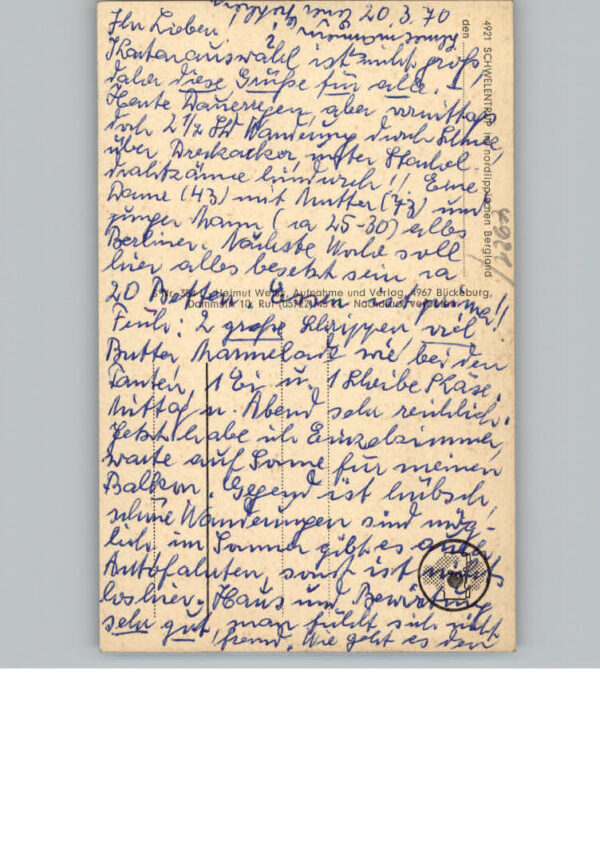 20.3.70
Ihr Lieben!
Kartenauswahl ist nicht groß
daher diese Grüße für alle.
Heute Dauerregen, aber vormittags
doch 2 1/2 Std Wanderung durch Schnee,
über Dreckacker, unter Stachel-
drahtzäune hindurch!! Eine
Dame (43) mit Mutter (73) und
junger Mann (ca 25-30) alles
Berliner. Nächste Woche soll
hier alles besetzt sein ca
20 Betten. Essen ist prima!!
Früh: 2 große Schrippen, viel
Butter, Marmelade wie bei den
Tanten, 1 Ei u. 1 Scheibe Käse.
Mittag u. Abend sehr reichlich.
Jetzt habe ich Einzelzimmer,
warte auf Sonne für meinen
Balkon. Gegend ist hübsch,
schöne Wanderungen sind mög-
lich, im Sommer gibt es auch
Autofahrten, sonst ist nichts
los hier. Haus und Bewirtung
sehr gut, man fühlt sich nicht
fremd. Wie geht es den
4921 SCHWELENTRUP im nordlippischen Bergland
den
4921/
Helmut Aufnahme und Verlag, 4967 Bückeburg,
Dammstr. 10, Ruf Nachdruck verboten